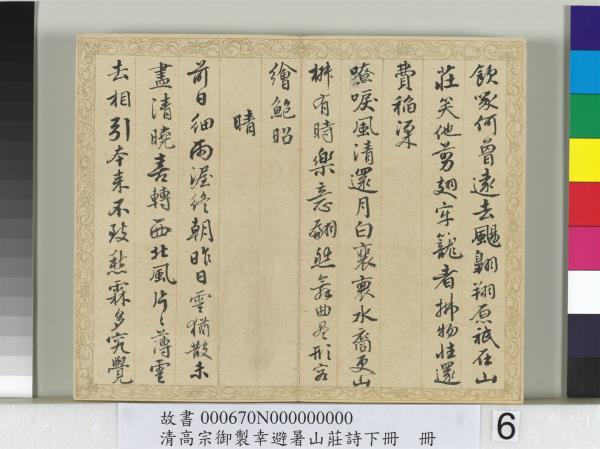 飲啄何曾遠去颺翺翔原祇在山
莊笑他剪翅牢籠者拂物性還
費稻粱
嘹唳風清還月白裵裵水裔更山
椒有時樂意翩然舞曲盡形容
繪鮑昭
晴
前日細雨渥終朝昨日雲猶散未
盡清曉喜轉西北風片〻薄雲
去相引本來不致愁霖多究覺
故書 000670N000000000
清高宗御製幸避暑山莊詩下冊 冊
6